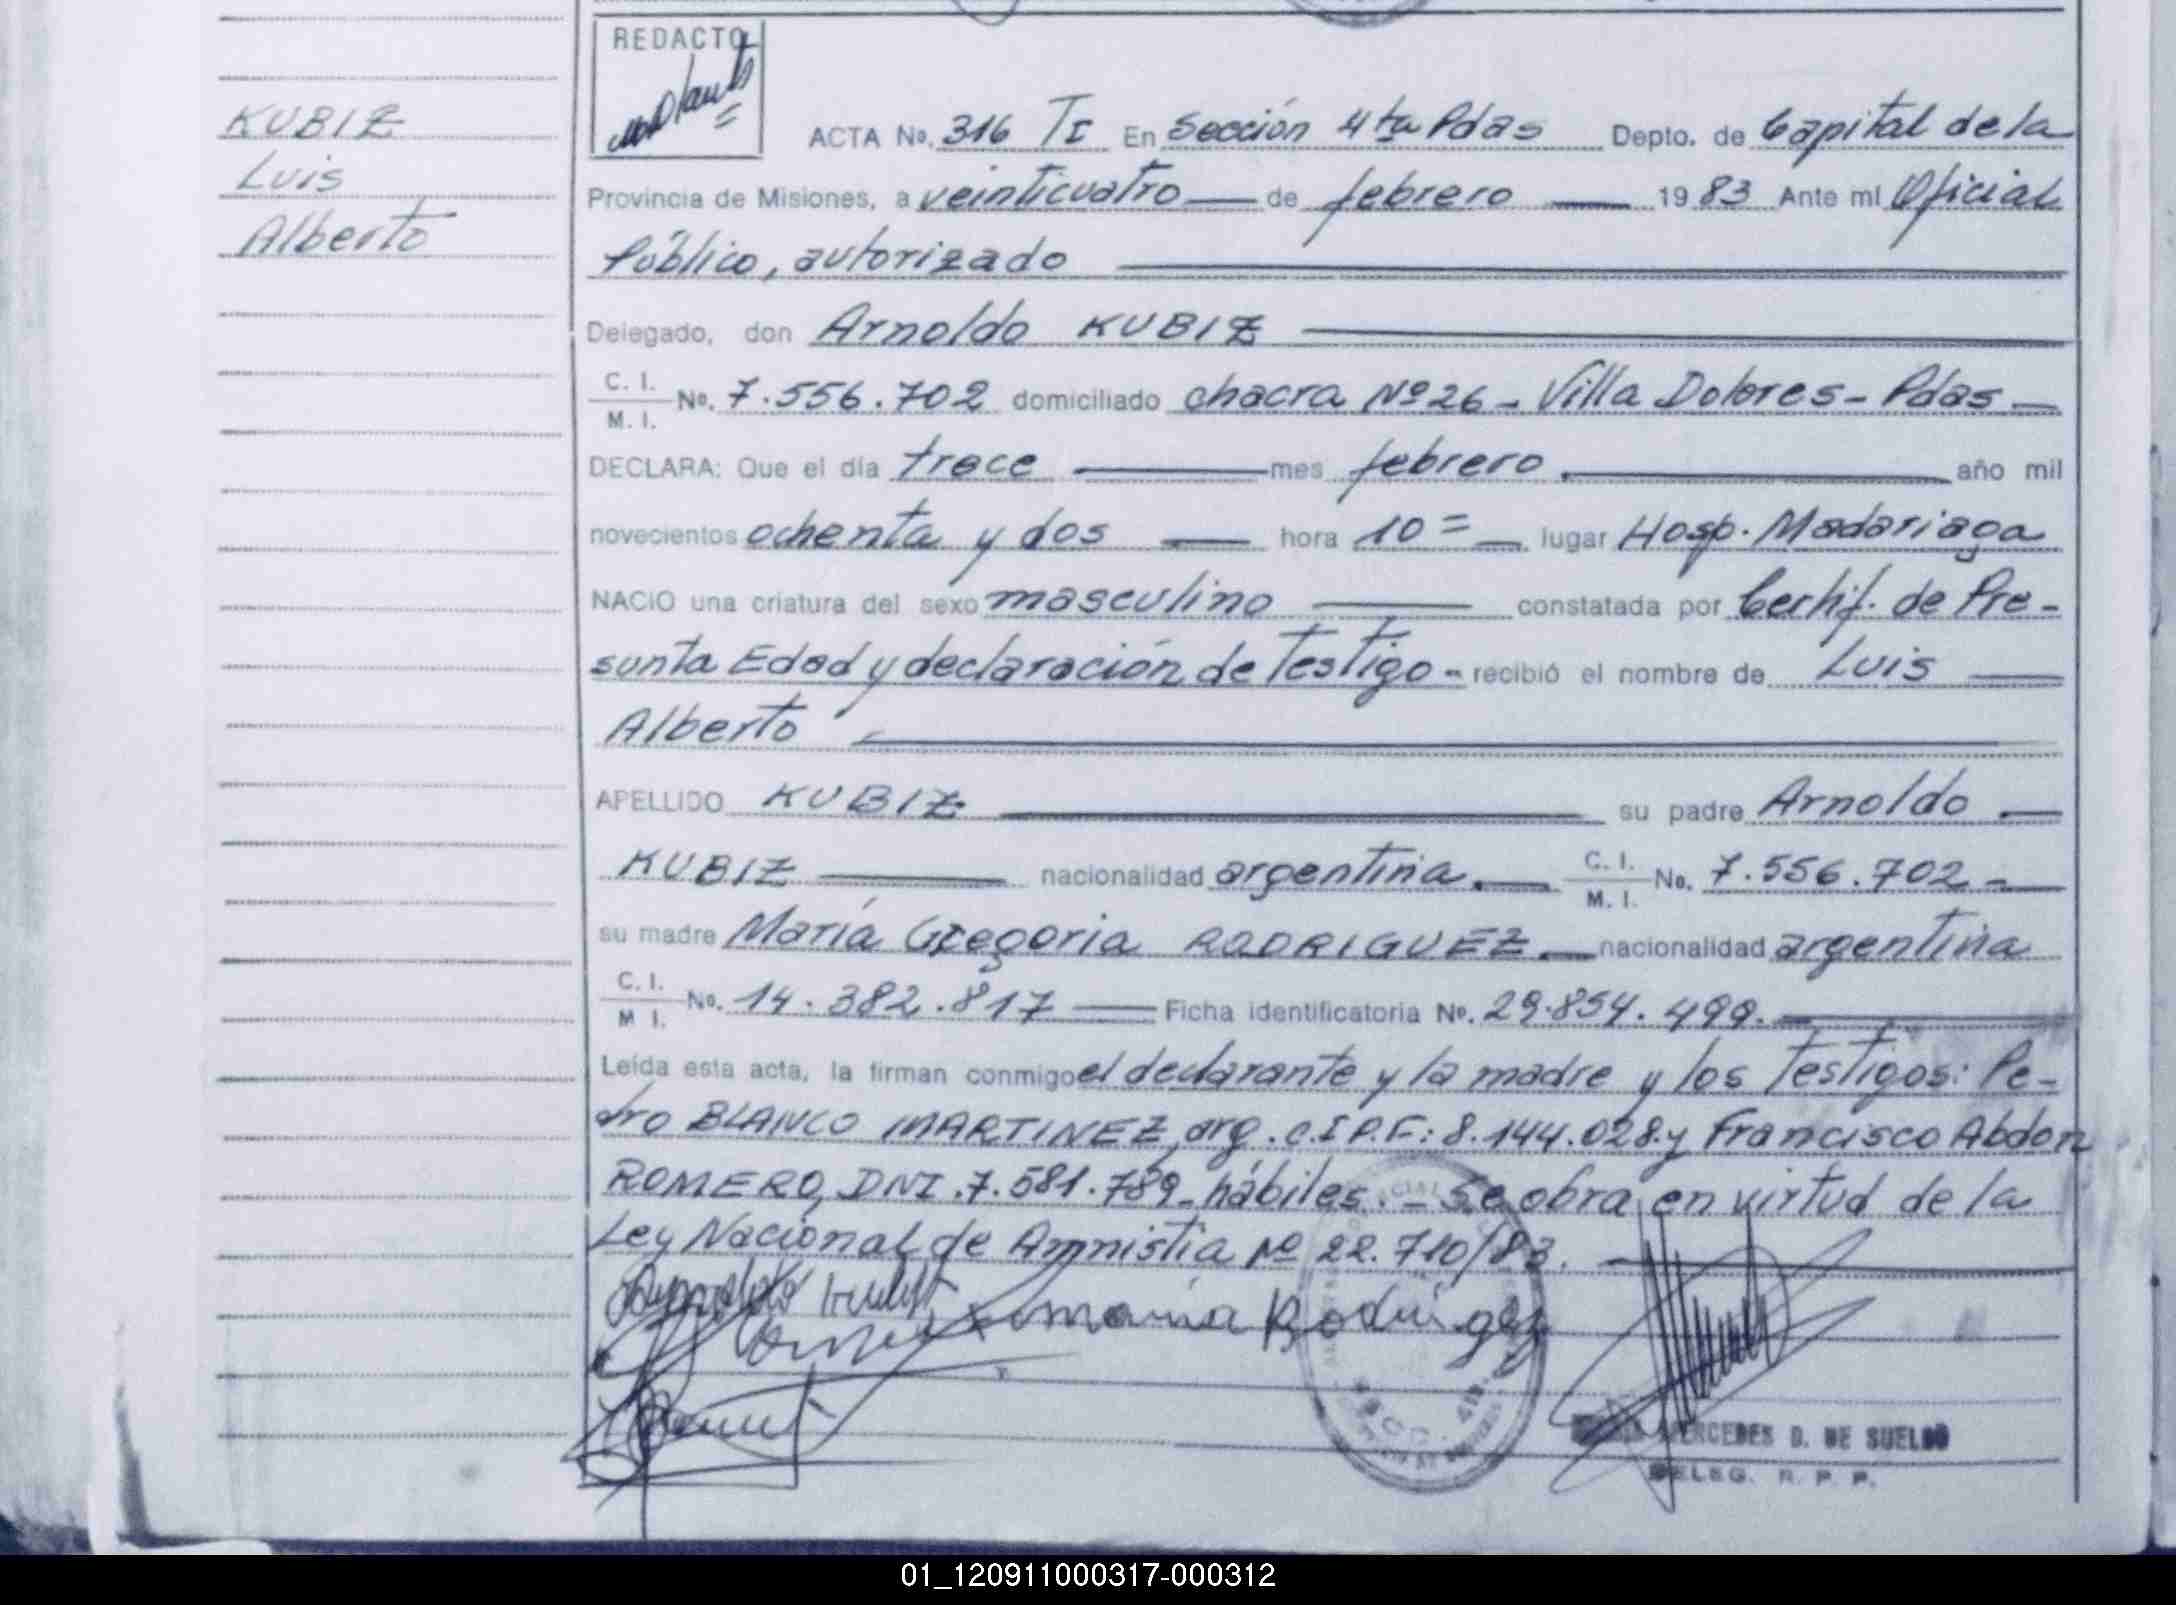 REDACTO
KUBIZ
Luis
Alberto
ACTA No. 316 TI En Sección 4ta Pdas Depto. de Capital de la
Provincia de Misiones, a veinticuatro de febrero 1983 Ante mí Oficial
Público, autorizado
Delegado, don Arnoldo KUBIZ
C. I. / M. I. No. 7.556.702 domiciliado chacra Nº 26 - Villa Dolores - Pdas
DECLARA: Que el día trece mes febrero año mil
novecientos ochenta y dos hora 10= lugar Hosp. Madariaga
NACIO una criatura del sexo masculino constatada por Certif. de Pre-
sunta Edad y declaración de Testigo - recibió el nombre de Luis
Alberto
APELLIDO KUBIZ su padre Arnoldo
KUBIZ nacionalidad argentina C. I. / M. I. No. 7.556.702 -
su madre María Gregoria RODRIGUEZ nacionalidad argentina
C. I. / M I. No. 14.382.817 Ficha identificatoria No. 29.854.499.
Leída esta acta, la firman conmigo el declarante y la madre y los Testigos: Pe-
dro BLANCO MARTINEZ, arg. C.I P.F: 8.144.028 y Francisco Abdon
ROMERO, DNI.7.581.789 - hábiles. - Se obra en virtud de la
Ley Nacional de Amnistia Nº 22.710/83.
maria Rodriguez
MERCEDES D. DE SUELDO
DELEG. R. P. P.
01_120911000317-000312